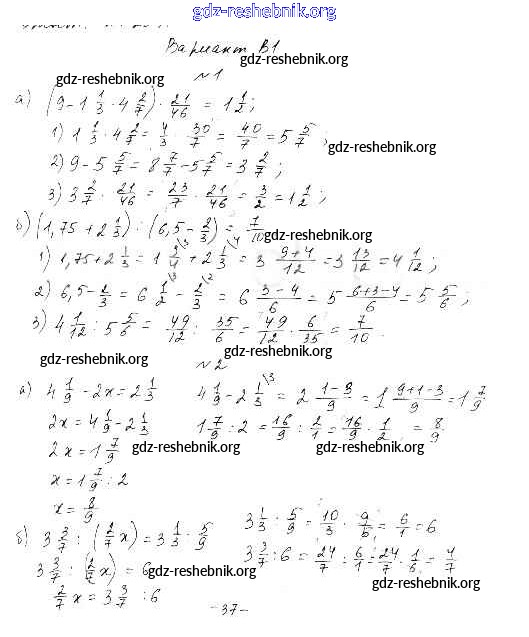 gdz-reshebnik.org
Вариант В1
gdz-reshebnik.org
gdz-reshebnik.org
№1
а) (9 - 1 1/3 · 4 2/7) · 21/46 = 1 1/2;
gdz-reshebnik.org
1) 1 1/3 · 4 2/7 = 4/3 · 30/7 = 40/7 = 5 5/7;
gdz-reshebnik.org
2) 9 - 5 5/7 = 8 7/7 - 5 5/7 = 3 2/7;
3) 3 2/7 · 21/46 = 23/7 · 21/46 = 3/2 = 1 1/2;
б) (1,75 + 2 1/3) : (6,5 - 2/3) = 7/10
gdz-reshebnik.org
1) 1,75 + 2 1/3 = 1 3\3/4 + 2 1\4/3 = 3 (9+4)/12 = 3 13/12 = 4 1/12;
2) 6,5 - 2/3 = 6 1\3/2 - 2\2/3 = 6 (3-4)/6 = 5 (6+3-4)/6 = 5 5/6;
3) 4 1/12 : 5 5/6 = 49/12 : 35/6 = 49/12 · 6/35 = 7/10.
gdz-reshebnik.org
gdz-reshebnik.org
№2
а) 4 1/9 - 2x = 2 1/3
2x = 4 1/9 - 2 1/3
2x = 1 7/9
x = 1 7/9 : 2
x = 8/9
4 1/9 - 2 1\3/3 = 2 (1-3)/9 = 1 (9+1-3)/9 = 1 7/9
1 7/9 : 2 = 16/9 : 2/1 = 16/9 · 1/2 = 8/9
gdz-reshebnik.org
gdz-reshebnik.org
б) 3 3/7 : (2/7 x) = 3 1/3 · 5/9
3 3/7 : (2/7 x) = 6
2/7 x = 3 3/7 : 6
3 1/3 : 5/9 = 10/3 · 9/5 = 6/1 = 6
3 3/7 : 6 = 24/7 : 6/1 = 24/7 · 1/6 = 4/7
gdz-reshebnik.org
gdz-reshebnik.org
-37-